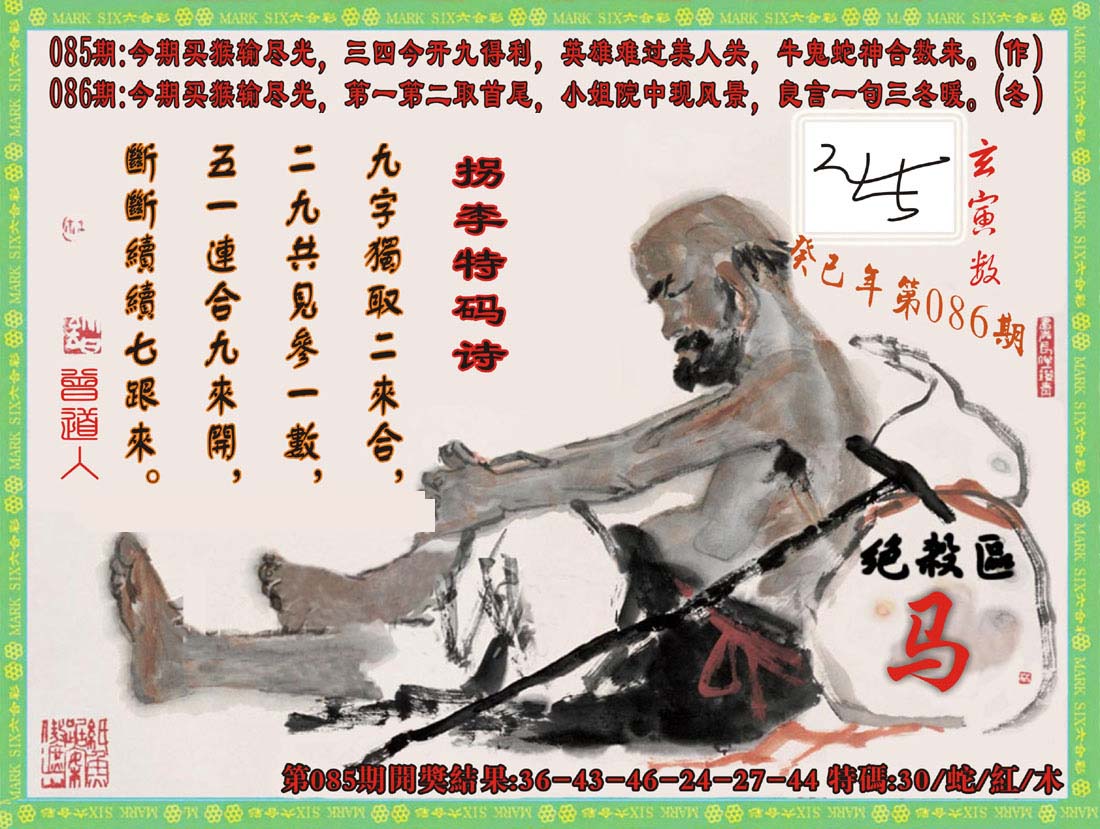 MARK SIX六合彩 MARK SIX六合彩 MARK SIX六合彩 MARK SIX六合彩 MARK SIX六合彩 MARK SIX六合彩
085期:今期买猴输尽光，三四今开九得利，英雄难过美人关，牛鬼蛇神合数来。(作)
086期:今期买猴输尽光，第一第二取首尾，小姐院中现风景，良言一句三冬暖。(冬)
玄寅数
癸巳年第086期
拐李特码诗
九字獨取二來合，
二九共見參一數，
五一連合九來開，
斷斷續續七跟來。
曾道人
绝殺區
马
第085期開獎結果:36-43-46-24-27-44 特碼:30/蛇/紅/木